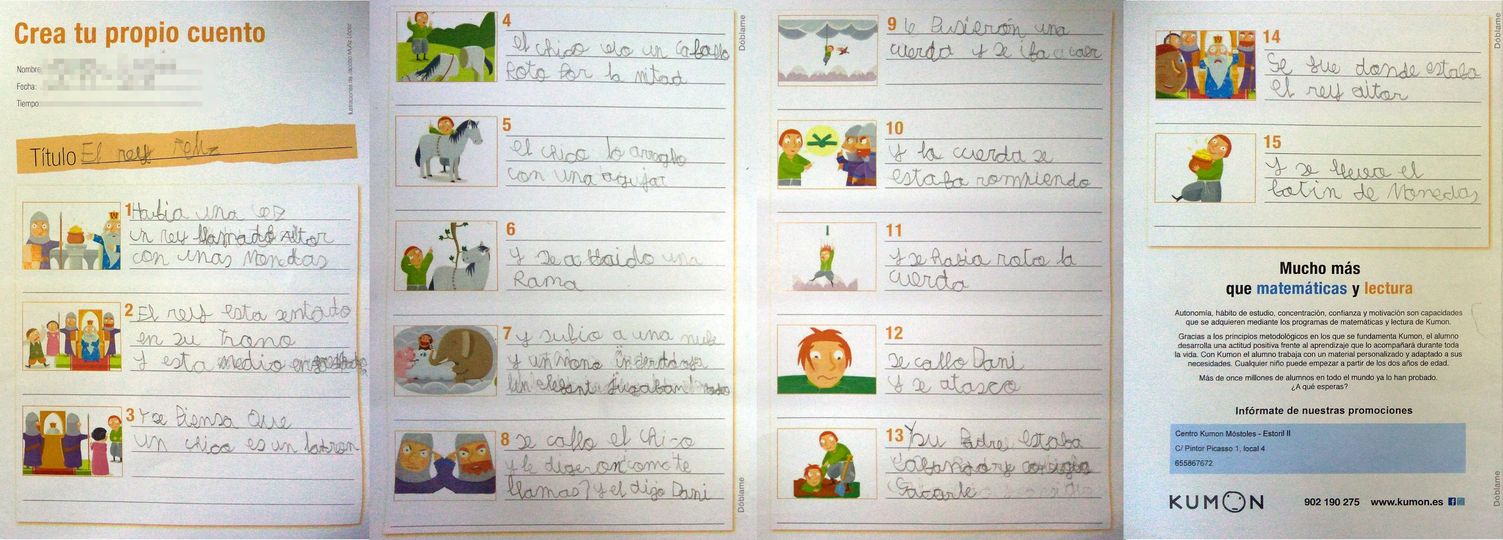 Crea tu propio cuento
Nombre
Fecha:
Tiempo
Ilustraciones de Jacobo Muñiz López
Título El rey Feliz
1 Había una vez
un rey llamado Aitor
con unas Monedas
2 El rey esta sentado
en su trono
Y esta medio enfadado
3 Y se Piensa Que
un chico es un ladron
4
el chico vio un caballo
Roto Por la mitad
5
el chico lo arreglo
con una aguja
6
Y se a traido una
Rama
7 y subio a una nube
y un mono un cerdo
un elefante jugaban
8 se callo el chico
y le digeron como te
llamas? y el digo Dani
Dóblame
Dóblame
9 le Pusierón una
cuerda y se iba a caer
10
Y la cuerda se
estaba rompiendo
11
y se había roto la
cuerda
12
se callo Dani
Y se atasco
13 Y su Padre estaba
Sacarle
14
Se fue donde estaba
el rey aitor
15
Y se llevo el
botin de Monedas
Dóblame
Dóblame
Mucho más
que matemáticas y lectura
Autonomía, hábito de estudio, concentración, confianza y motivación son capacidades
que se adquieren mediante los programas de matemáticas y lectura de Kumon.
Gracias a los principios metodológicos en los que se fundamenta Kumon, el alumno
desarrolla una actitud positiva frente al aprendizaje que lo acompañará durante toda
la vida. Con Kumon el alumno trabaja con un material personalizado y adaptado a sus
necesidades. Cualquier niño puede empezar a partir de los dos años de edad.
Más de once millones de alumnos en todo el mundo ya lo han probado.
¿A qué esperas?
Infórmate de nuestras promociones
Centro Kumon Móstoles - Estoril II
C/ Pintor Picasso 1, local 4
655867672
KUMON 902 190 275 www.kumon.es